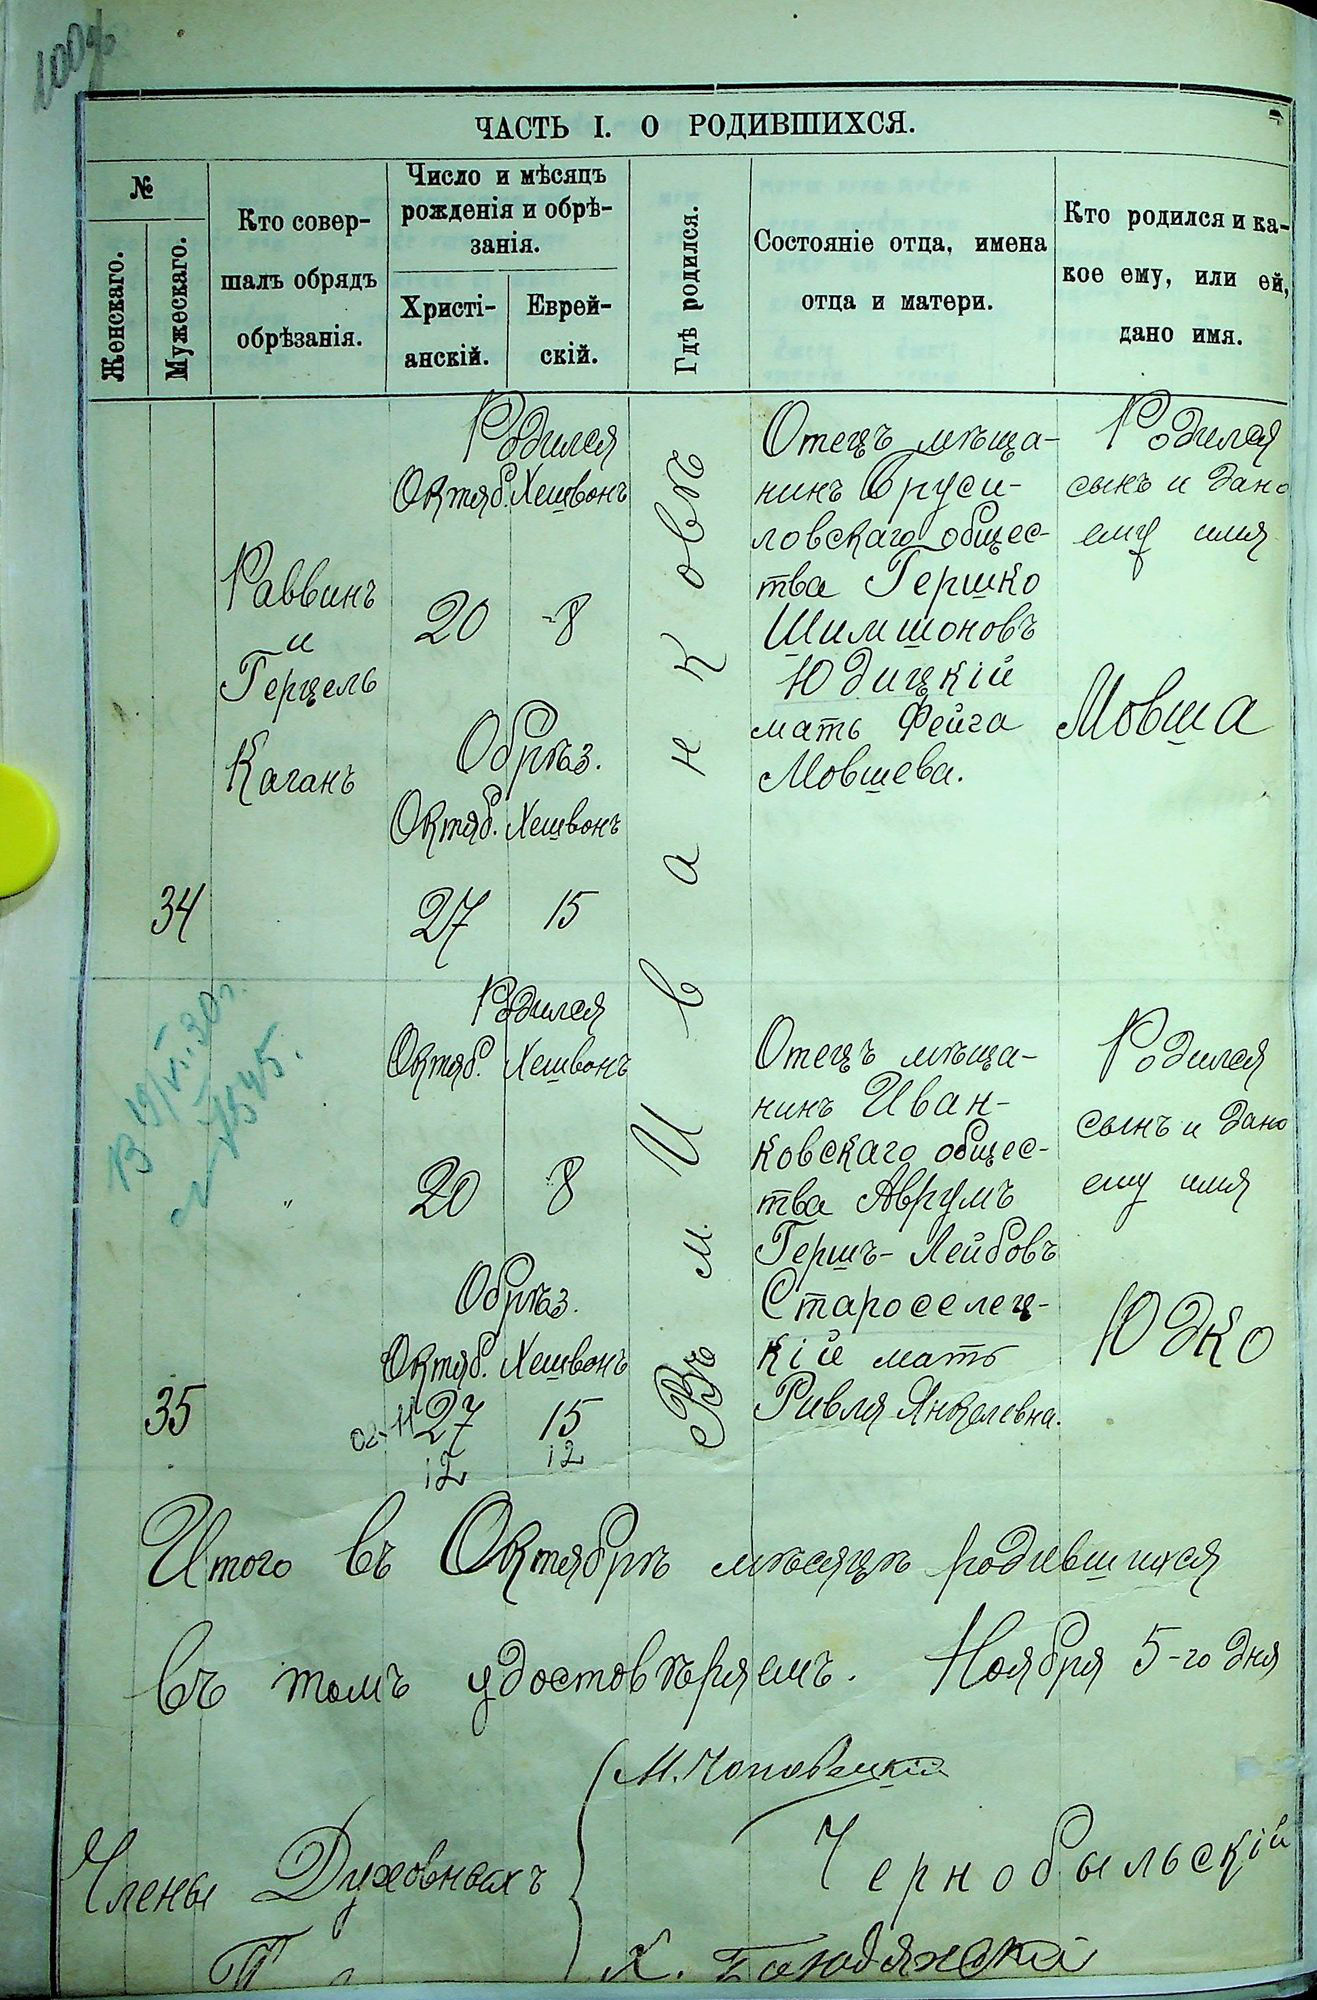 ЧАСТЬ I. О РОДИВШИХСЯ.
№
Женскаго.
Мужескаго.
Кто совер-
шалъ обрядъ
обрѣзанія.
Число и мѣсяцъ
рожденія и обрѣ-
занія.
Христі-
анскій.
Еврей-
скій.
Гдѣ родился.
Состояніе отца, имена
отца и матери.
Кто родился и ка-
кое ему, или ей,
дано имя.
34
Раввинъ
и
Герцель
Каганъ
Родился
Октяб. Хешвонъ
20 8
Обрѣз.
Октяб. Хешвонъ
27 15
Въ м. Иванковѣ
Отецъ мѣща-
нинъ Бруси-
ловскаго общес-
тва Гершко
Шимшоновъ
Юдицкій
мать Фейга
Мовшева.
Родился
сынъ и дано
ему имя
Мовша
35
"
Родился
Октяб. Хешвонъ
20 8
Обрѣз.
Октяб. Хешвонъ
27 15
12 12
Отецъ мѣща-
нинъ Иван-
ковскаго общес-
тва Аврумъ
Гершъ-Лейбовъ
Староселец-
кій мать
Ривля Янкелевна.
Родился
сынъ и дано
ему имя
Юдко
Итого въ Октябрѣ мѣсяцѣ родившихся
въ томъ удостовѣряемъ. Ноября 5-го дня
Члены Духовныхъ
Чернобыльскій